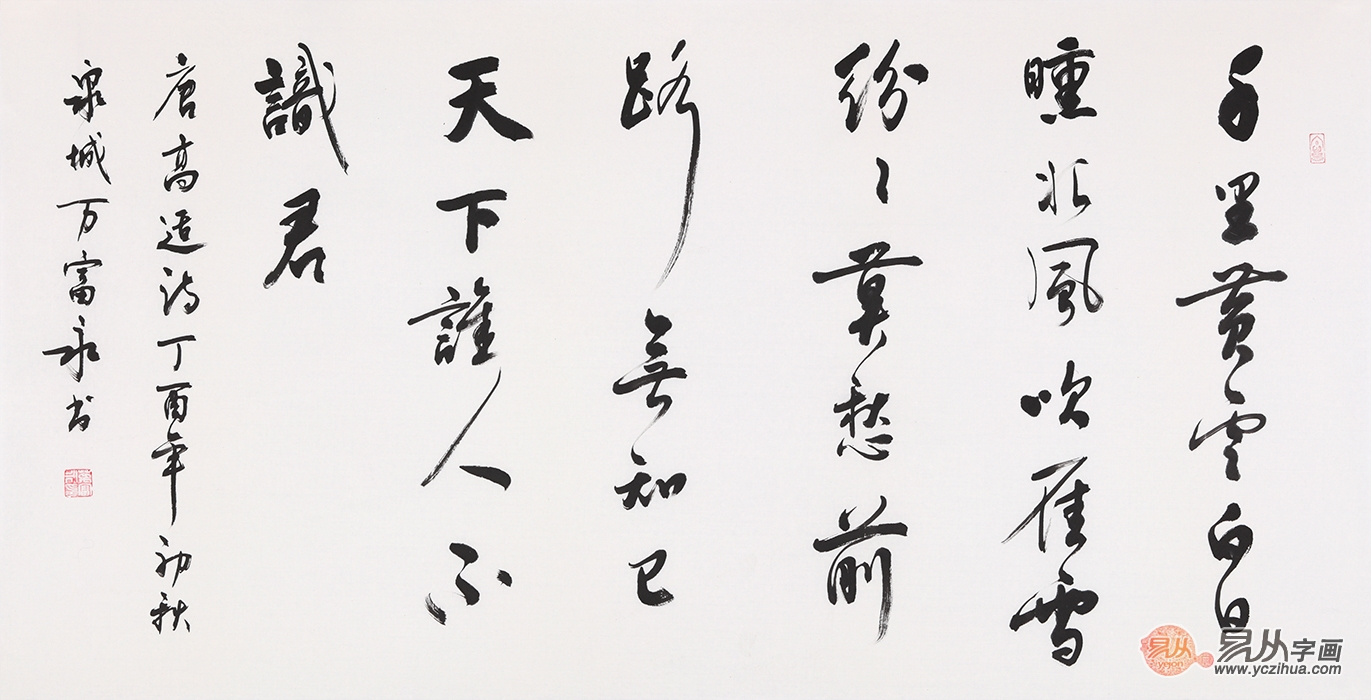 千里黄雲白日
曛北風吹雁雪
紛〻莫愁前
路無知己
天下誰人不
識君
唐高適詩丁酉年初秋
泉城万富永书
易从字画
www.yczihua.com